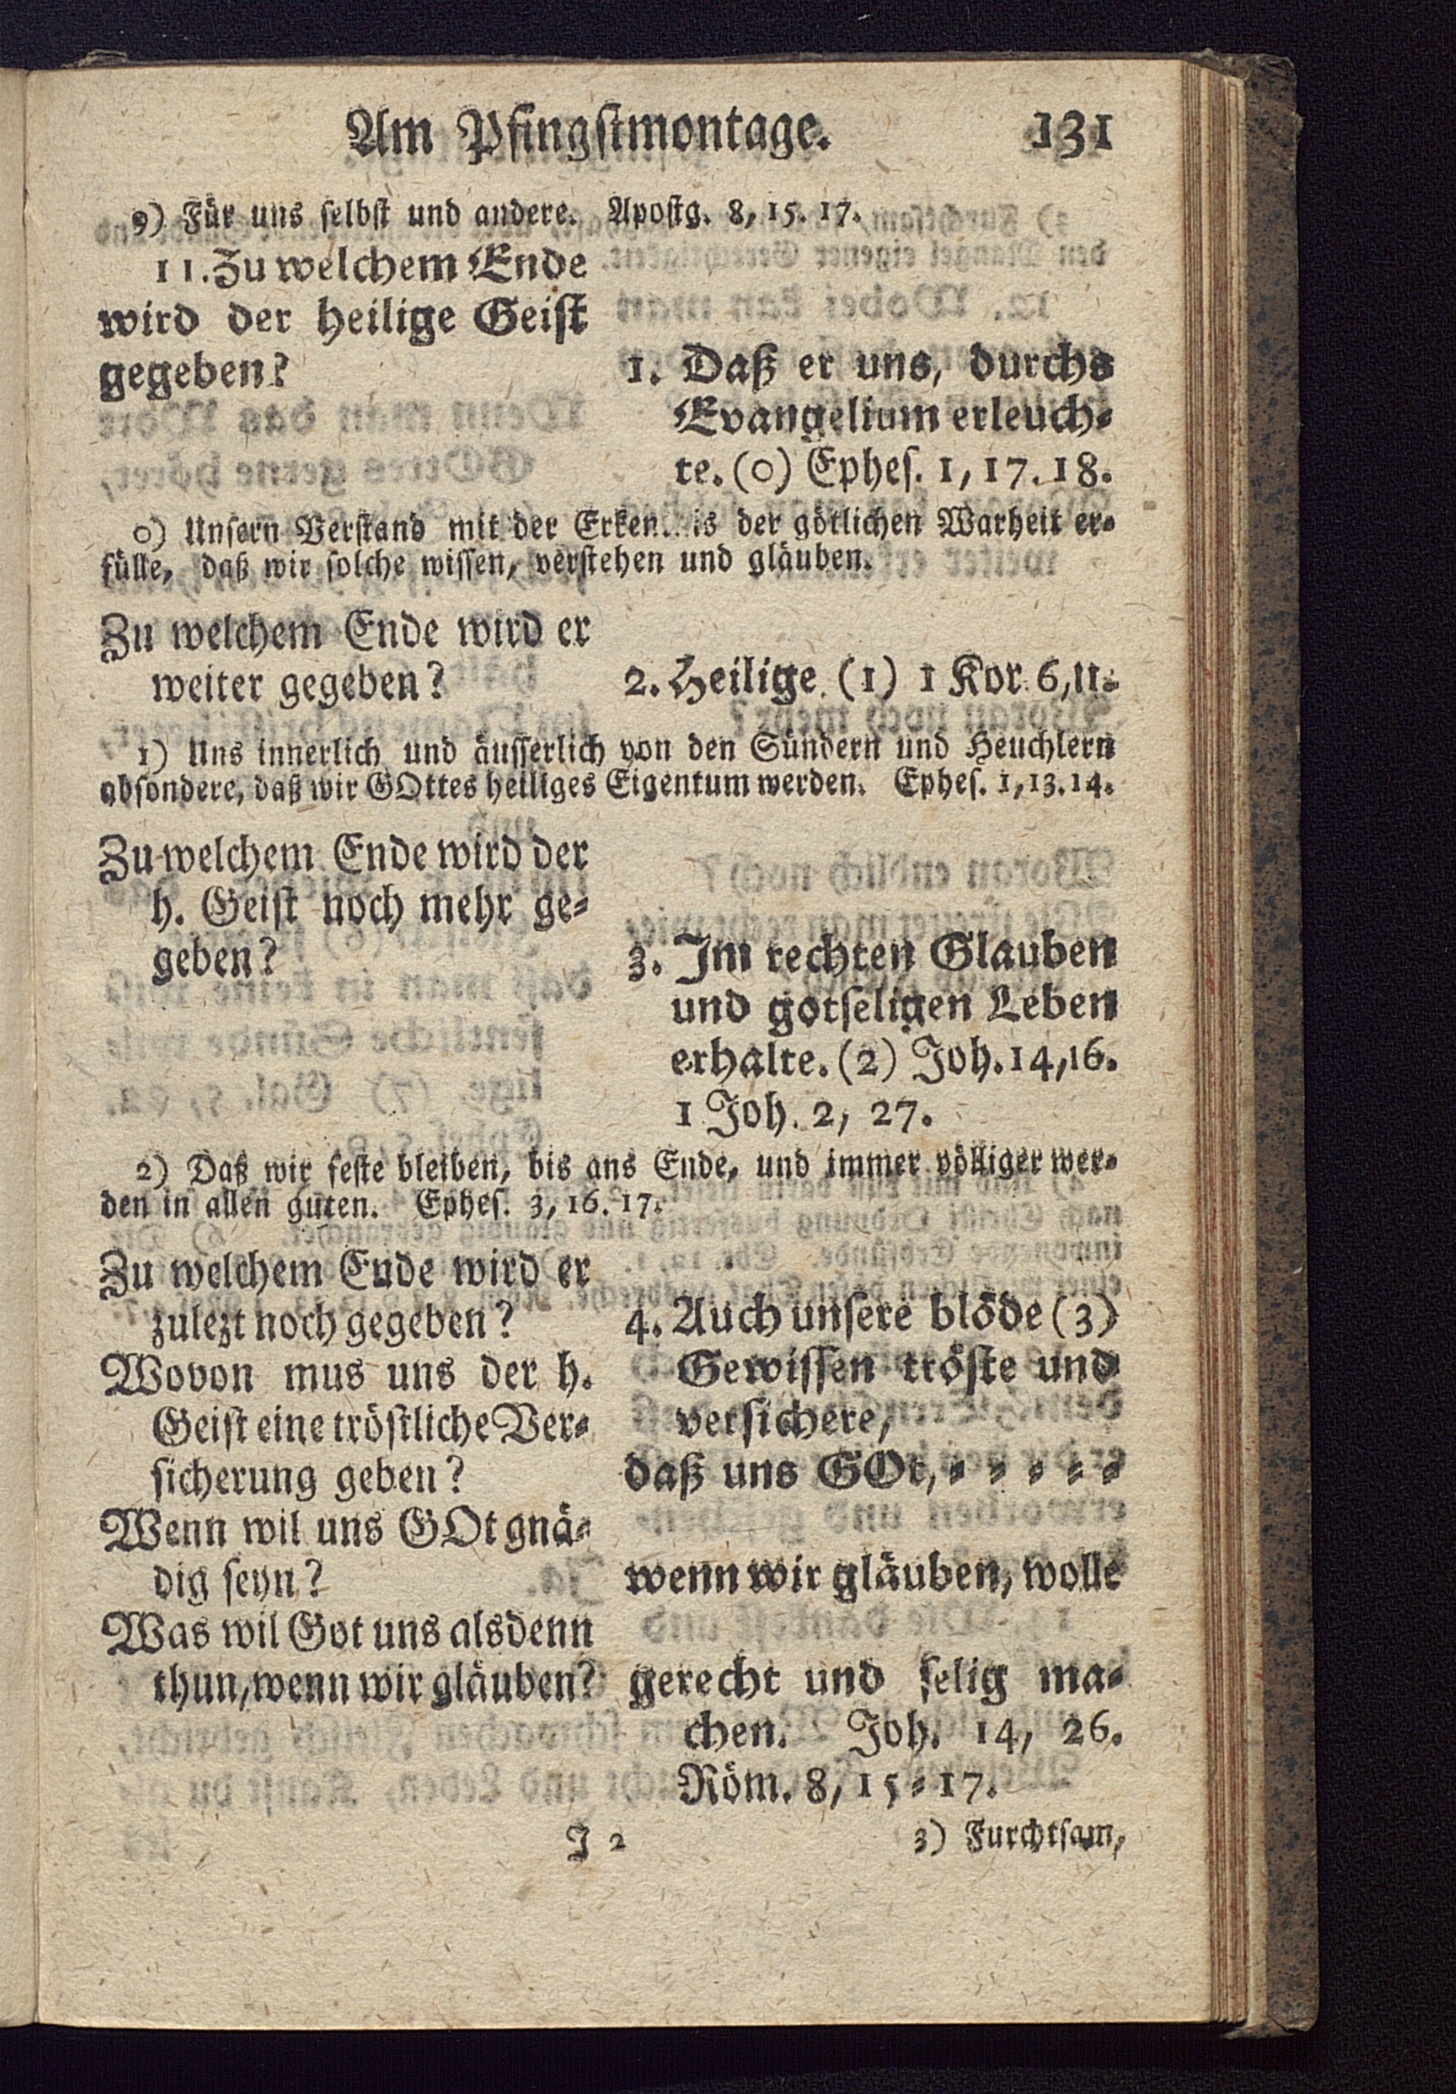 Am Pfingstmontage. 131
9) Für uns selbst und andere. Apostg. 8, 15. 17.
11. Zu welchem Ende
wird der heilige Geist
gegeben?
1. Daß er uns, durchs
Evangelium erleuch-
te. (0) Ephes. 1, 17. 18.
0) Unsern Verstand mit der der götlichen Warheit er-
fülle, daß wir solche wissen, verstehen und gläuben.
Zu welchem Ende wird er
weiter gegeben?
2. Heilige. (1) 1 Kor. 6, 11.
1) Uns innerlich und äusserlich von den Sündern und Heuchlern
absondere, daß wir GOttes heiliges Eigentum werden. Ephes. 1, 13. 14.
Zu welchem Ende wird der
h. Geist noch mehr ge-
geben?
3. Im rechten Glauben
und gotseligen Leben
erhalte. (2) Joh. 14, 16.
1 Joh. 2, 27.
2) Daß wir feste bleiben, bis ans Ende, und immer völliger wer-
den in allen guten. Ephes. 3, 16. 17.
Zu welchem Ende wird er
zulezt noch gegeben?
4. Auch unsere blöde (3)
Gewissen tröste und
versichere,
Wovon mus uns der h.
Geist eine tröstliche Ver-
sicherung geben?
daß uns GOt, - - - - -
Wenn wil uns GOt gnä-
dig seyn?
wenn wir gläuben, wolle
Was wil Got uns alsdenn
thun, wenn wir gläuben?
gerecht und selig ma-
chen. Joh. 14, 26.
Röm. 8, 15-17.
J 2
3) Furchtsam,